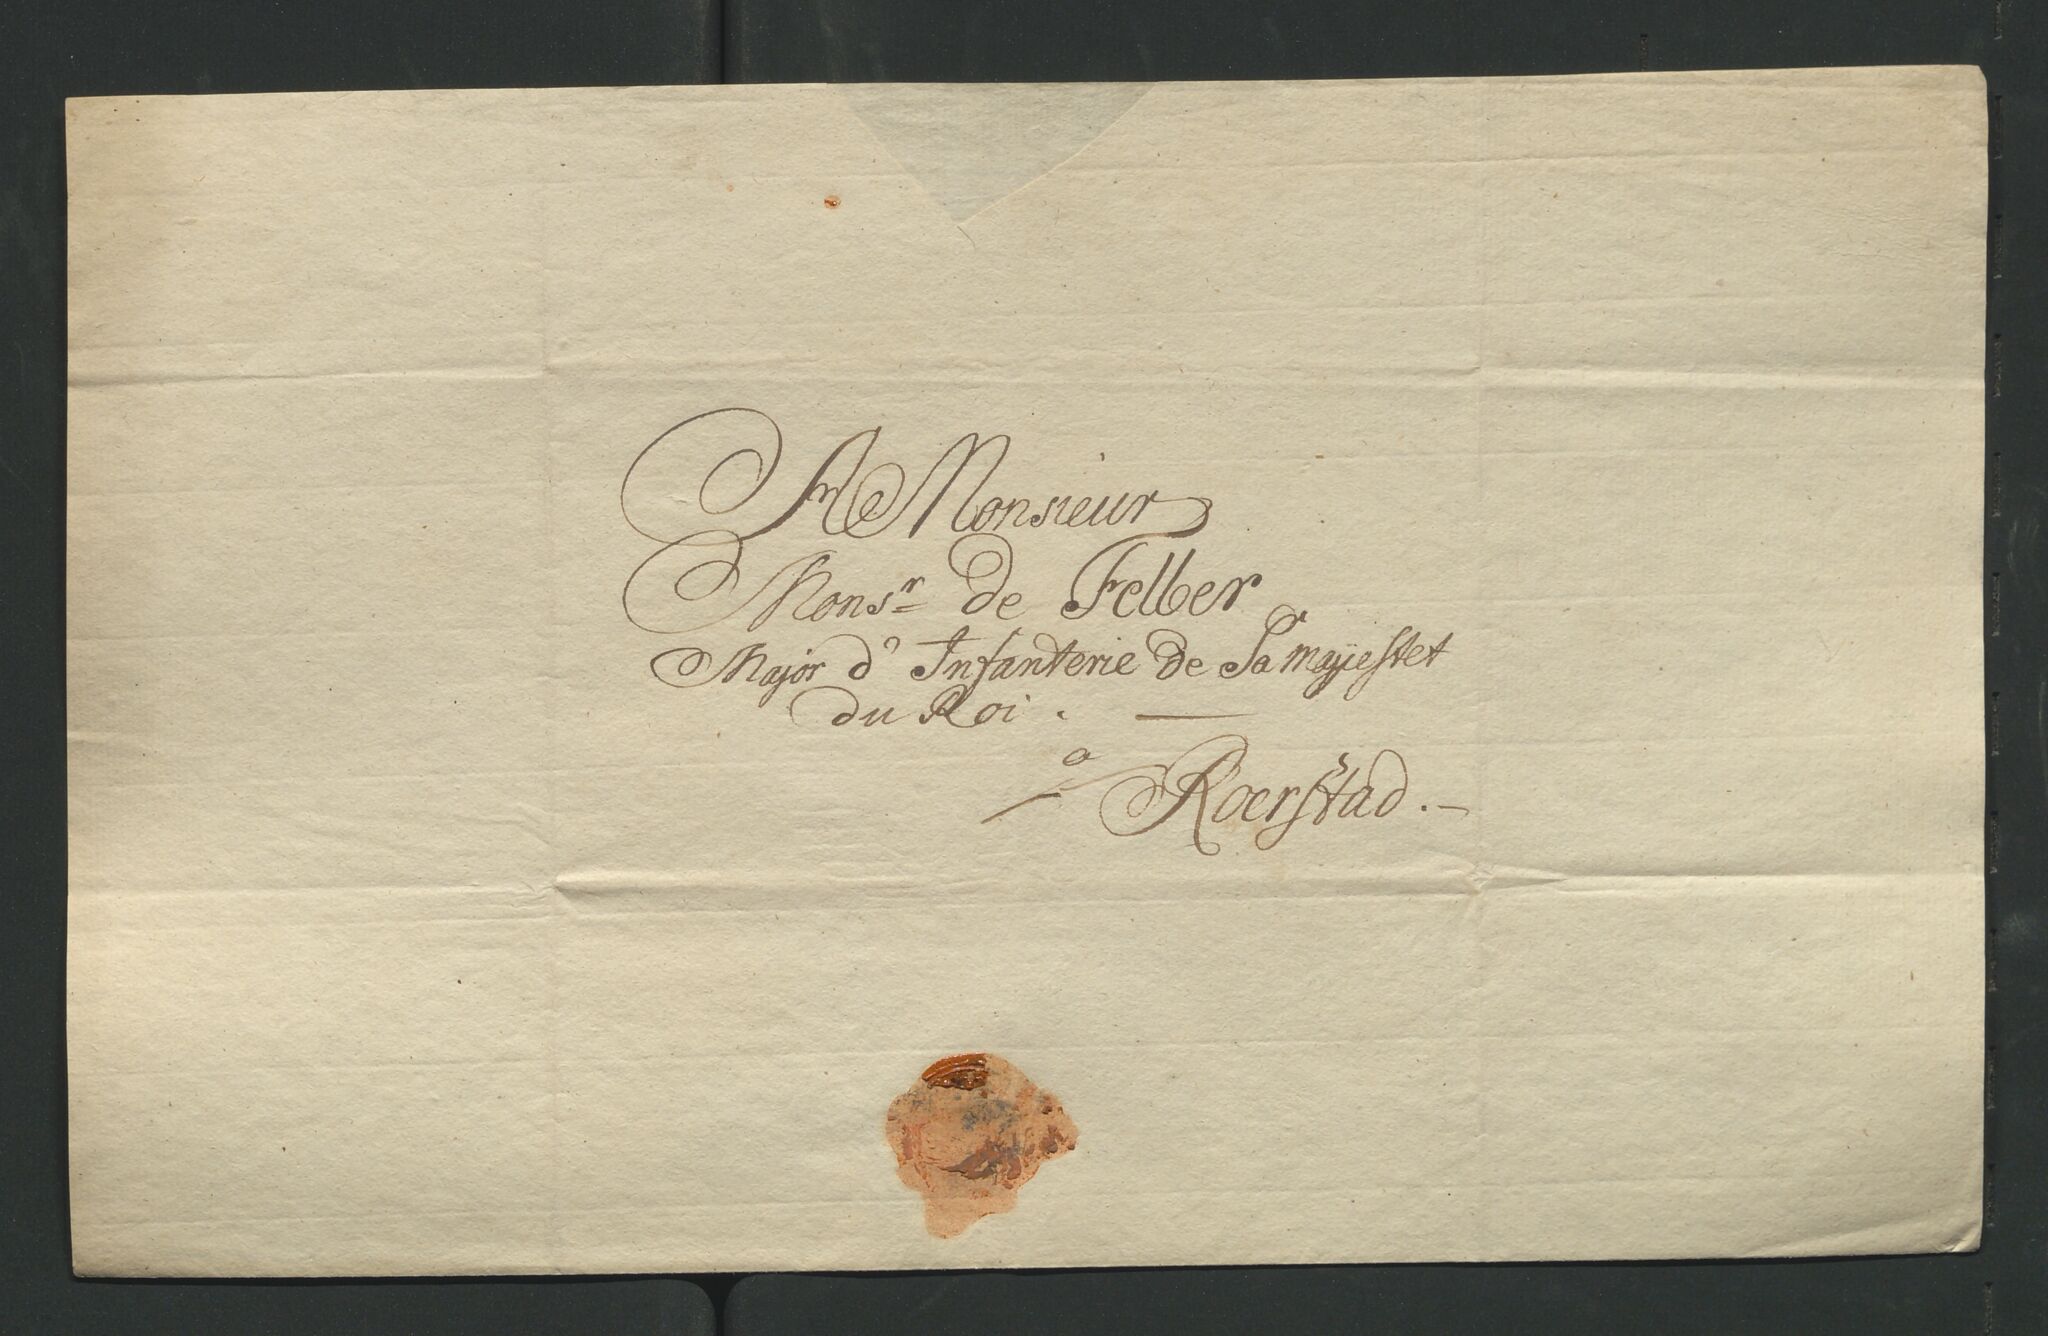 A Monsieur
Monsr de Felber
Major d' Infanterie de Sa mayiestet
du Roi. —
a
Roerstad. —